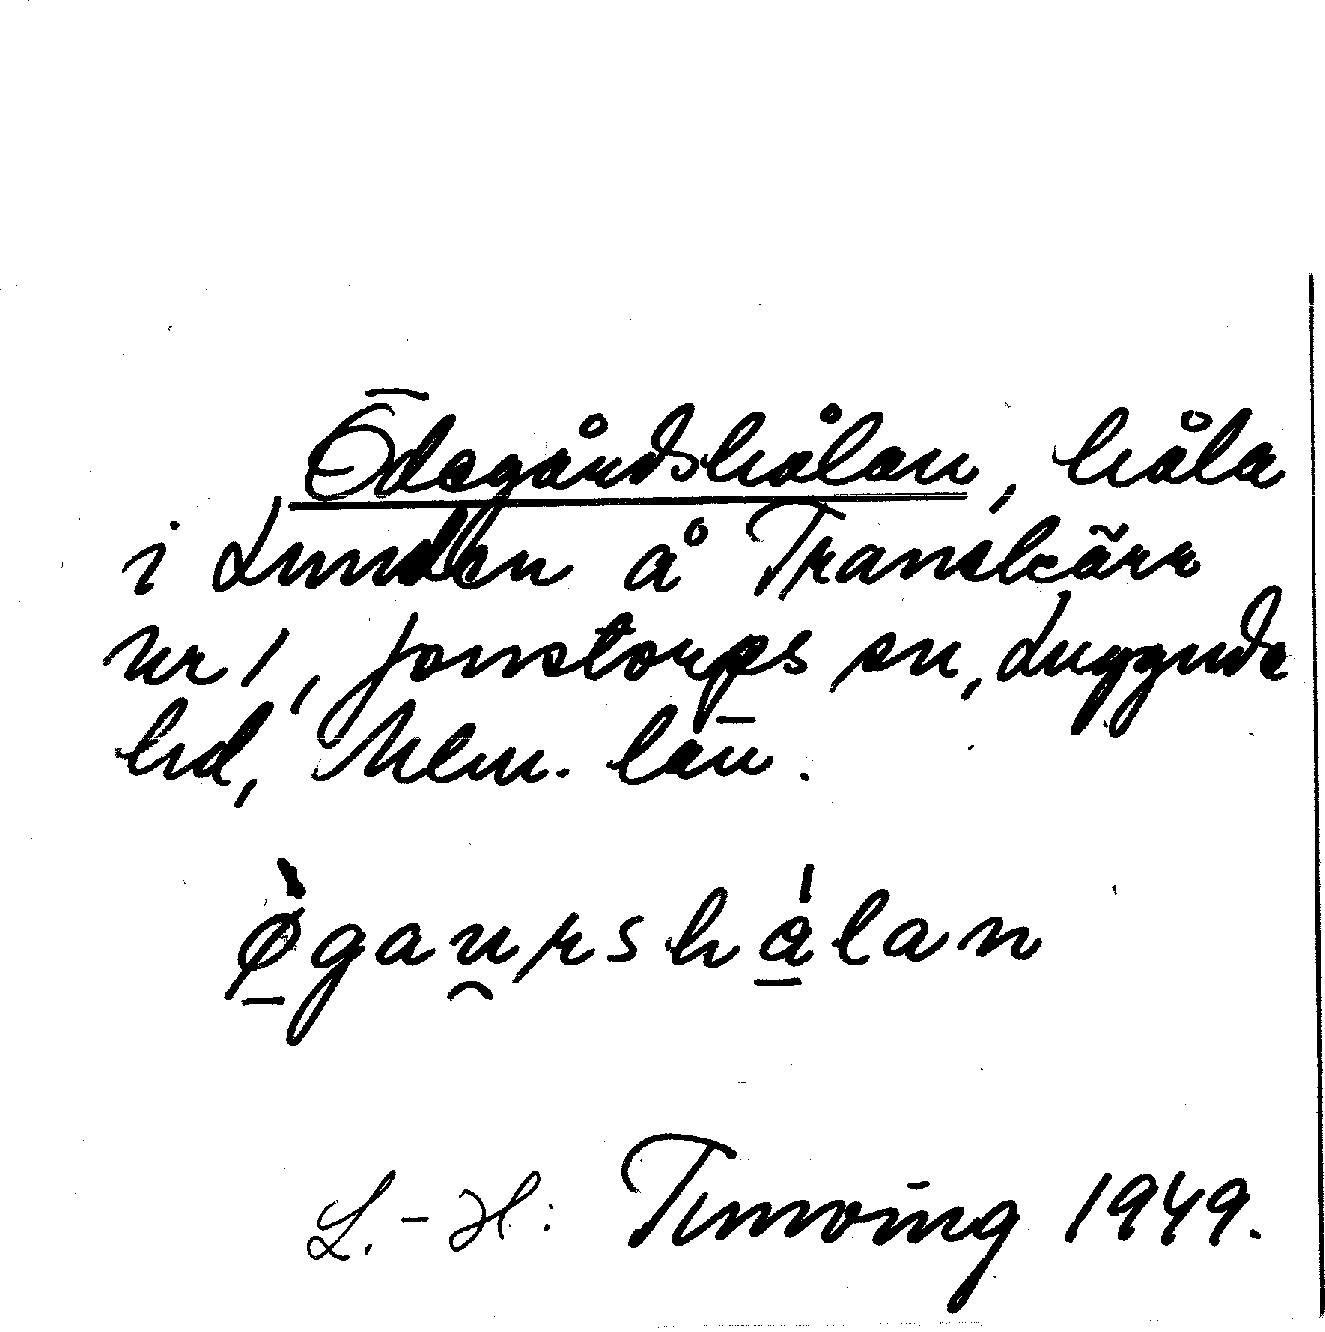 Ödegårdshålan, håla
i Lunden å Transkärr
Nr 1, Jonstorps sn, Luggude
hd, Mlm. län.
ø̱̀gau̯rshá̱lan
L.-H: Tunving 1949.